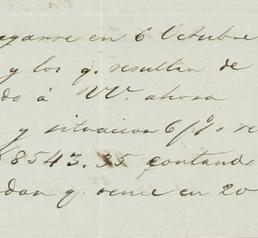 egarse en 6 Octubre
y los q. resultan de
do á VV. ahora
y situacion 6 p% re
8543.35 contando
dan q. vence en 20